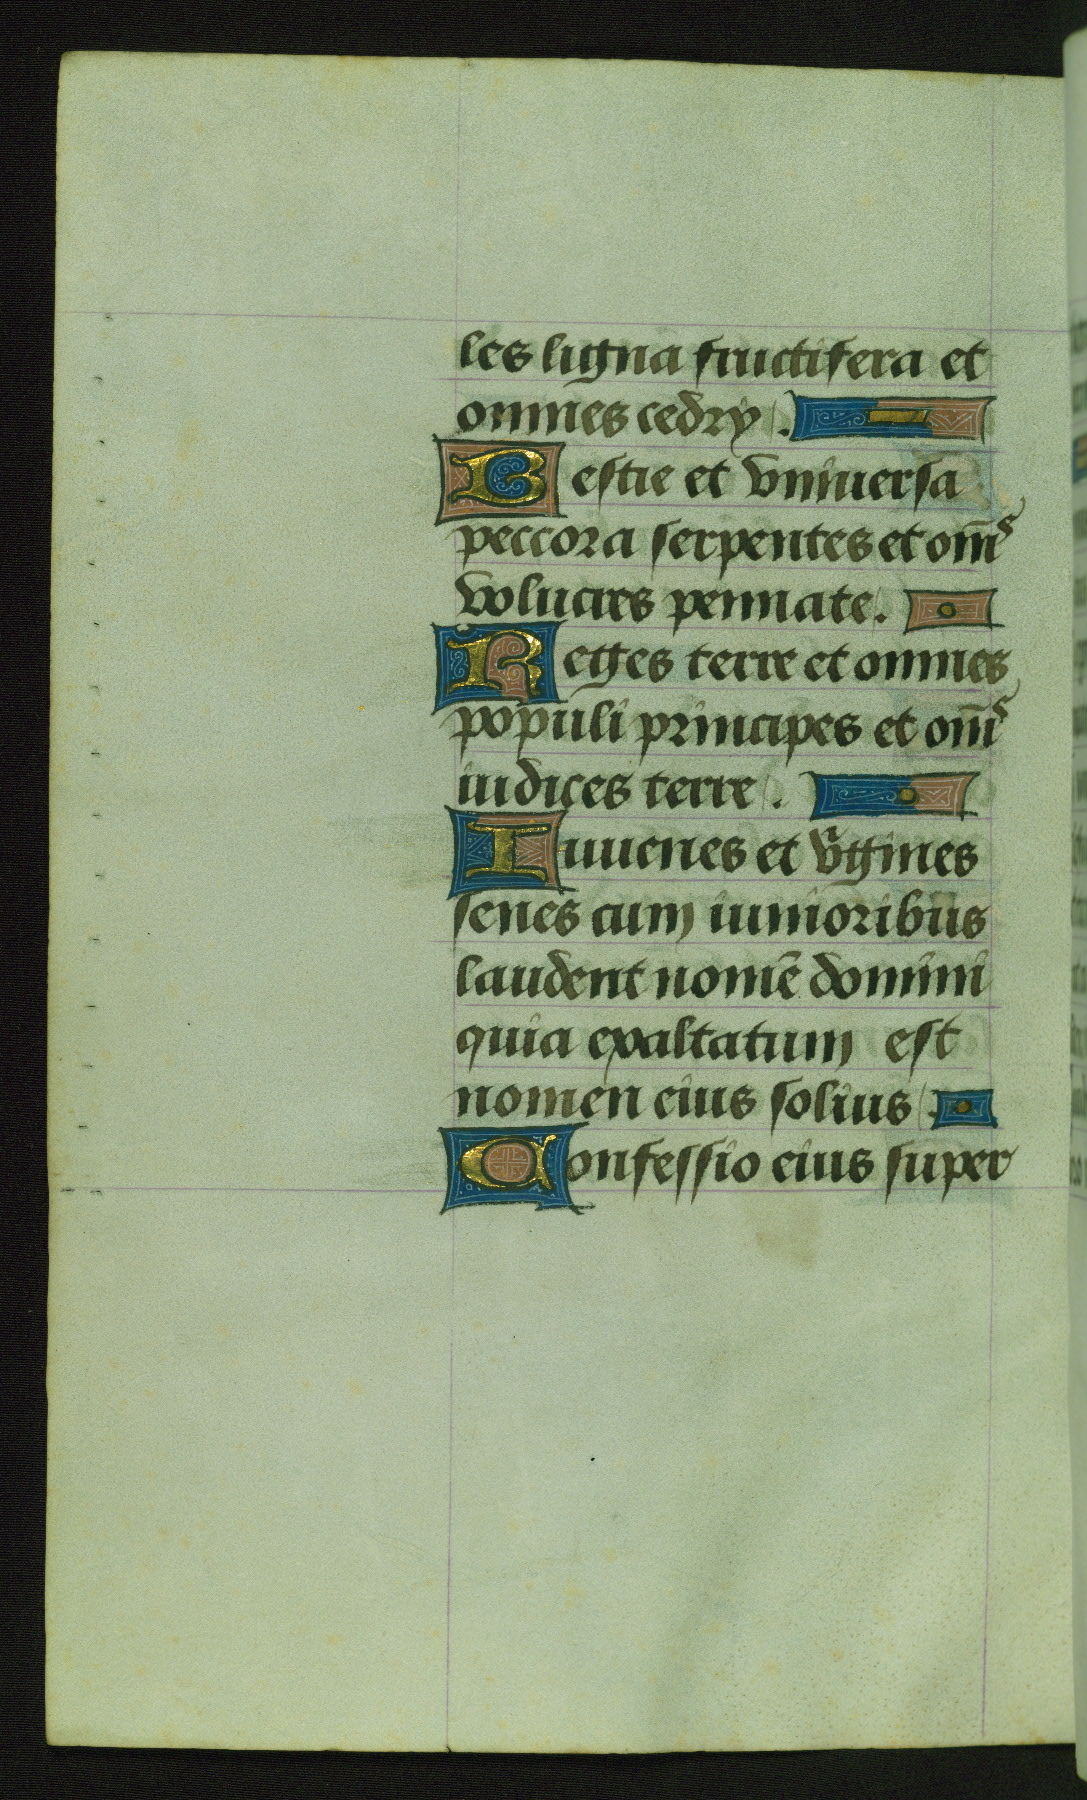 les ligna fructifera et
omnes cedry.
Bestie et vniuersa
peccora serpentes et om̅s
volucres pennate.
Reges terre et omnes
populi principes et om̅s
iudices terre.
Iuuenes et v̅gines
senes cum iunioribus
laudent nomē domini
quia exaltatum est
nomen eius solius.
Confessio eius super